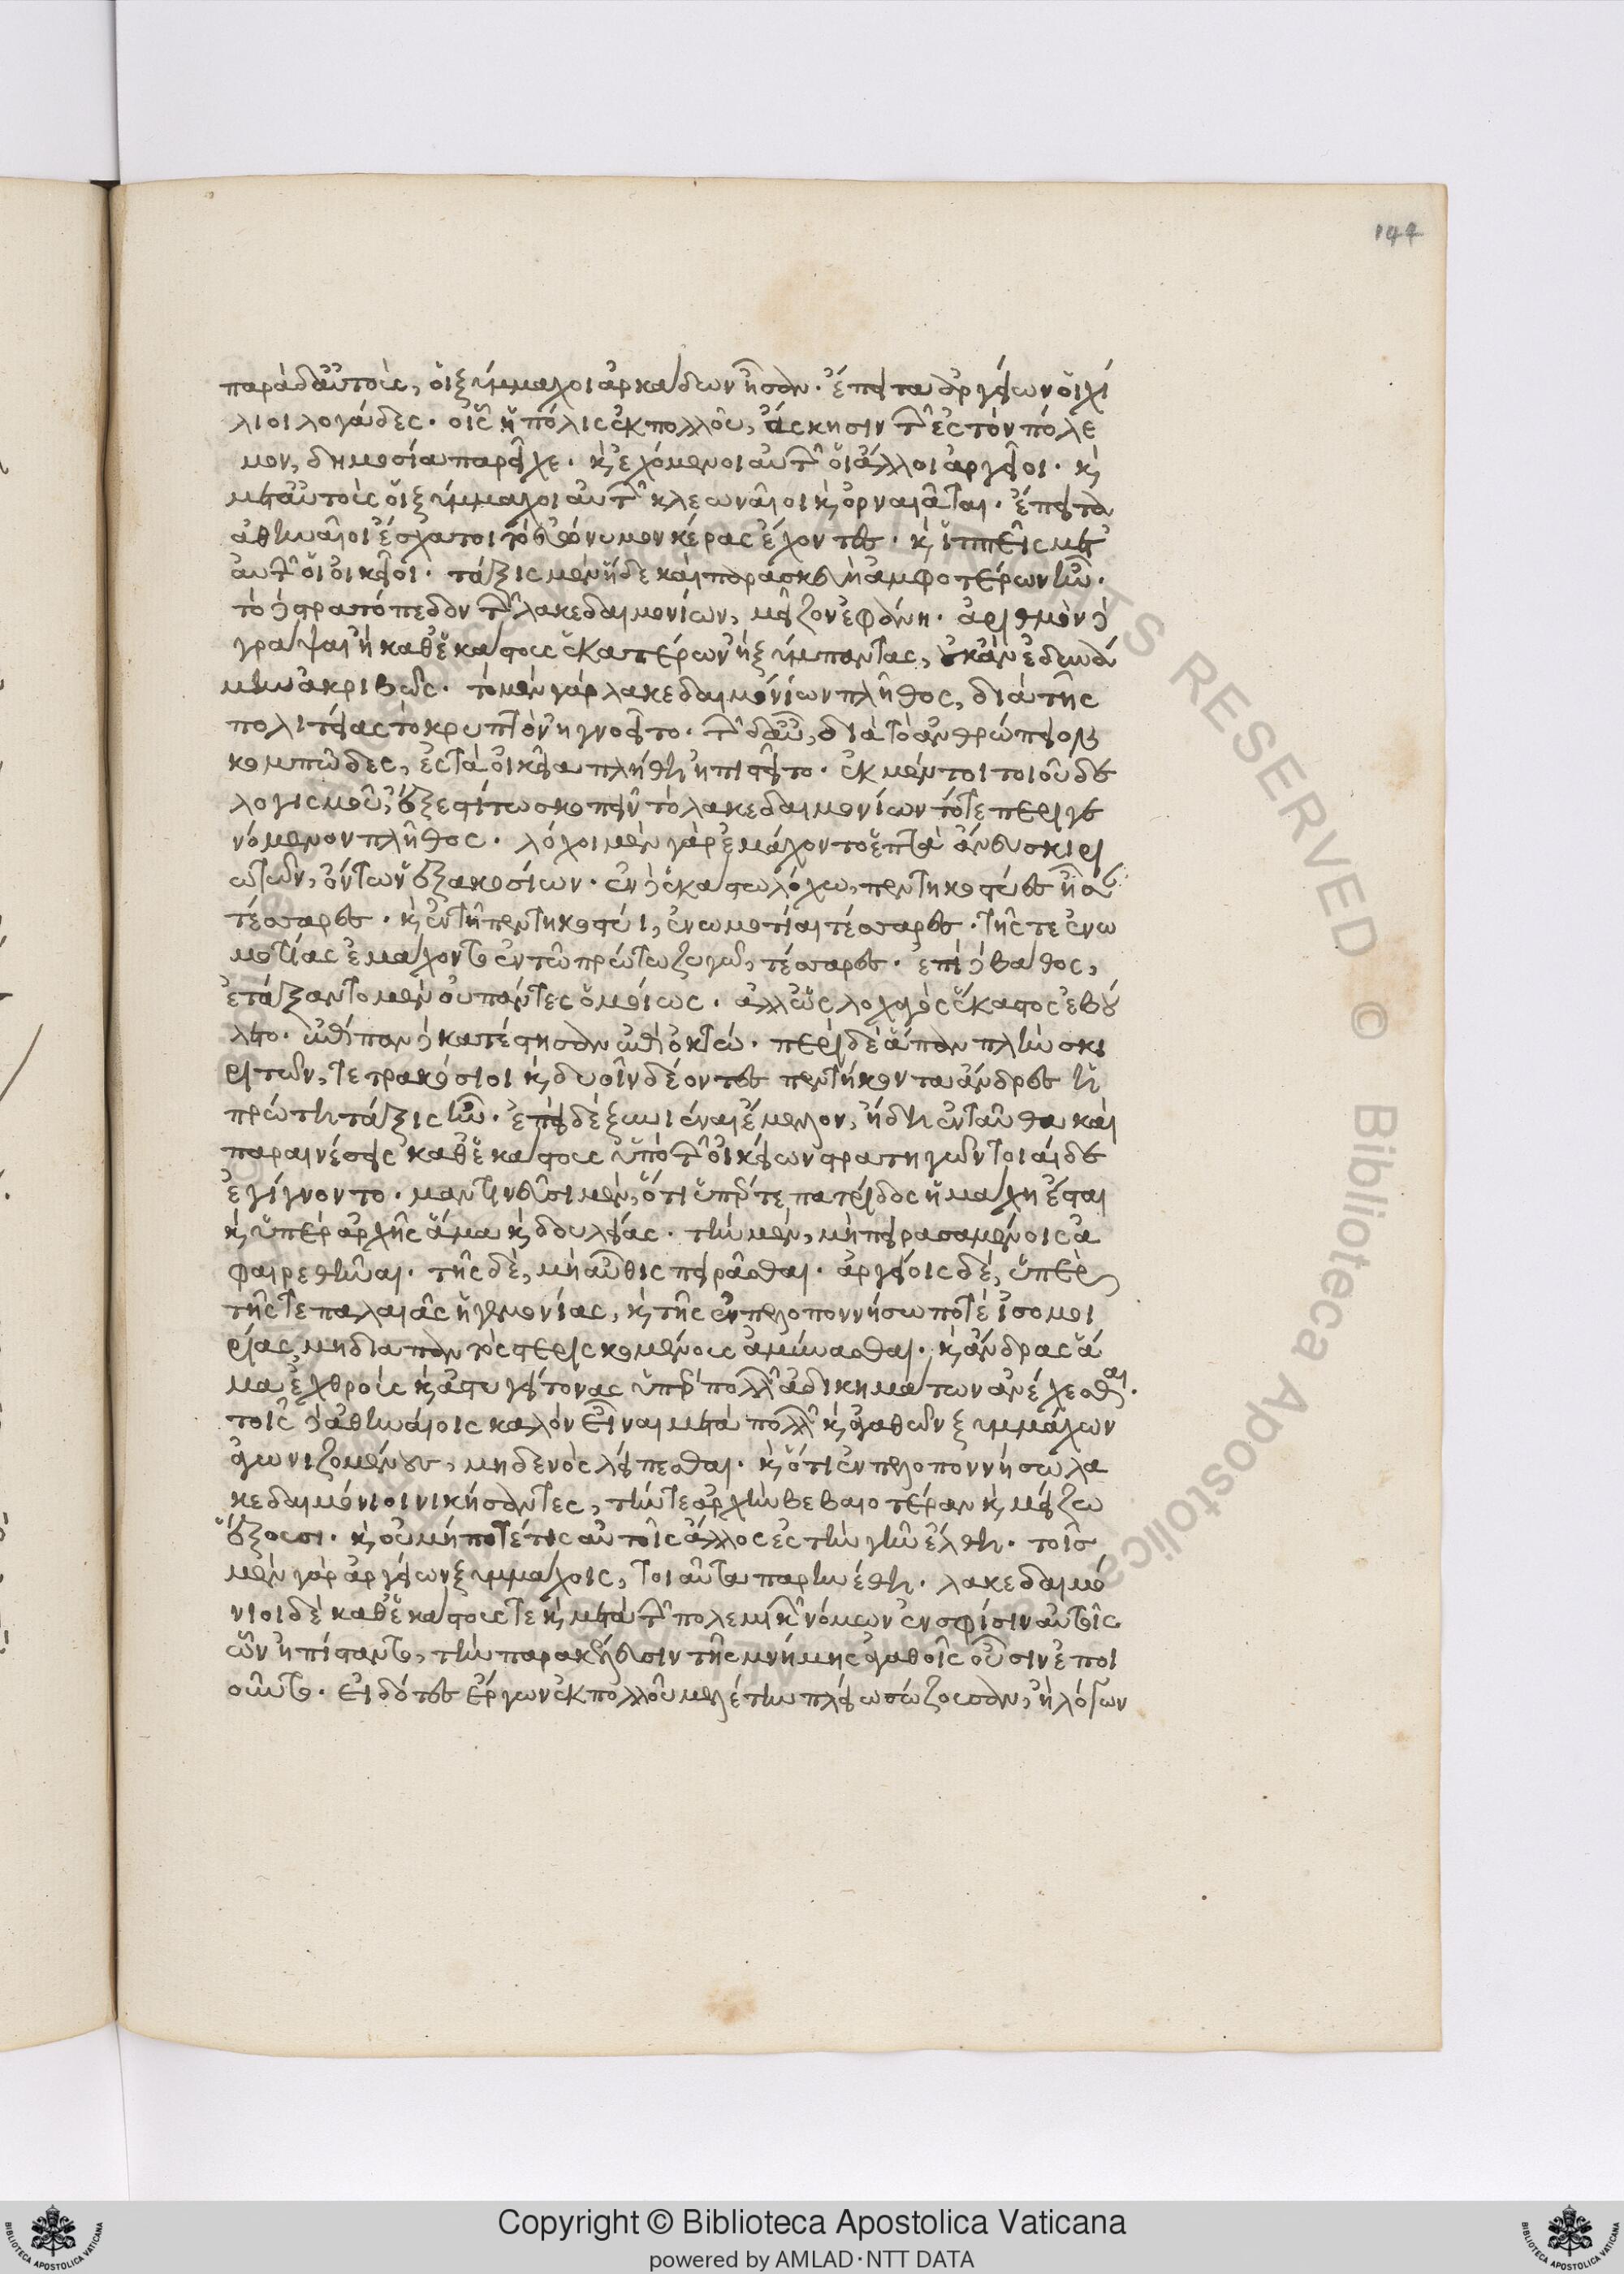 144
παρὰ δ' αὐτοῖς, οἱ ξύμμαχοι ἀρκάδων ἦσαν. ἔπειτα ἀργείων οἱ χί
λιοι λογάδες. οἷς ἡ πόλις ἐκ πολλοῦ, ἄσκησιν τῶν ἐς τὸν πόλε
μον, δημοσία παρεῖχε. καὶ ἐχόμενοι αὐτῶν οἱ ἄλλοι ἀργεῖοι. καὶ
μετ' αὐτοὺς οἱ ξύμμαχοι αὐτῶν κλεωναῖοι καὶ ὀρνεαῖται. ἔπειτα
ἀθηναῖοι ἔσχατοι τὸ εὐώνυμον κέρας ἔχοντες. καὶ ἱππεῖς μετ'
αὐτῶν οἱ οἰκεῖοι. τάξις μὲν ἥδε καὶ παρασκευὴ ἀμφοτέρων ἦν.
τὸ δὲ στρατόπεδον τῶν λακεδαιμονίων, μεῖζον ἐφάνη. ἀριθμὸν δὲ
γράψαι ἢ καθ' ἑκάστους ἑκατέρων ἢ ξύμπαντας, οὐκ ἂν ἐδυνά
μην ἀκριβῶς. τὸ μὲν γὰρ λακεδαιμονίων πλῆθος, διὰ τῆς
πολιτείας τὸ κρυπτὸν ἠγνοεῖτο. τῶν δ' αὖ, διὰ τὸ ἀνθρώπειον
κομπῶδες, ἐς τὰ οἰκεῖα πλήθη ἠπιστεῖτο. ἐκ μέντοι τοιοῦδε
λογισμοῦ, ἔξεστί τω σκοπεῖν τὸ λακεδαιμονίων τότε περιγε
νόμενον πλῆθος. λόχοι μὲν γὰρ ἐμάχοντο ἑπτὰ ἄνευ σκιρι
ωτῶν, ὄντων ἑξακοσίων. ἐν δὲ ἑκάστω λόχω, πεντηκοστύες ἦσαν
τέσσαρες. καὶ ἐν τῇ πεντηκοστύι, ἐνωμοτίαι τέσσαρες. τῆς τε ἐνω
μοτίας ἐμάχοντο ἐν τῷ πρώτω ζυγῷ, τέσσαρες. ἐπὶ δὲ βάθος,
ἐτάξαντο μὲν οὐ πάντες ὁμοίως. ἀλλ' ὡς λοχαγὸς ἕκαστος ἐβού
λετο. ἐπὶ πᾶν δὲ κατέστησαν ἐπὶ ὀκτώ. παρὰ δὲ ἅπαν πλὴν σκι
ριτῶν, τετρακόσιοι καὶ δυοῖν δέοντες πεντήκοντα ἄνδρες ἡ
πρώτη τάξις ἦν. ἐπεὶ δὲ ξυνιέναι ἔμελλον, ἤδη ἐνταῦθα καὶ
παραινέσεις καθ' ἑκάστους ὑπὸ τῶν οἰκείων στρατηγῶν τοιαίδε
ἐγίγνοντο. μαντινεῦσι μὲν, ὅτι ὑπέρ τε πατρίδος ἡ μάχη ἔσται
καὶ ὑπὲρ ἀρχῆς ἅμα καὶ δουλείας. τὴν μὲν, μὴ πειρασαμένοις ἀ
φαιρεθῆναι. τῆς δὲ, μὴ αὖθις πειρᾶσθαι. ἀργείοις δὲ, ὑπὲρ
τῆς τε παλαιᾶς ἡγεμονίας, καὶ τῆς ἐν πελοποννήσω ποτὲ ἰσομοι
ρίας, μὴ διὰ παντὸς στερισκομένους ἀμύνασθαι. καὶ ἄνδρας ἅ
μα ἐχθροὺς καὶ ἀστυγείτονας ὑπὲρ πολλῶν ἀδικημάτων ἀνέχεσθαι.
τοῖς δὲ ἀθηναίοις καλὸν εἶναι μετὰ πολλῶν καὶ ἀγαθῶν ξυμμάχων
ἀγωνιζομένους, μηδενὸς λείπεσθαι. καὶ ὅτι ἐν πελοποννήσω λα
κεδαιμονίους νικήσαντες, τήν τε ἀρχὴν βεβαιοτέραν καὶ μείζω
ἕξουσι. καὶ οὐ μή ποτέ τις αὐτοῖς ἄλλος ἐς τὴν γῆν ἔλθη. τοῖς
μὲν γὰρ ἀργείων ξυμμάχοις, τοιαῦτα παρηνέθη. λακεδαιμό
νιοι δὲ καθ' ἑκάστους τε καὶ μετὰ τῶν πολεμικῶν νόμων ἐν σφίσιν αὐτοῖς
ὧν ἠπίσταντο, τὴν παρακέλευσιν τῆς μνήμης ἀγαθοῖς οὖσιν ἐποι
οῦντο. εἰδότες ἔργων ἐκ πολλοῦ μελέτην πλείω σώζουσαν, ἢ λόγων
Copyright © Biblioteca Apostolica Vaticana
powered by AMLAD·NTT DATA